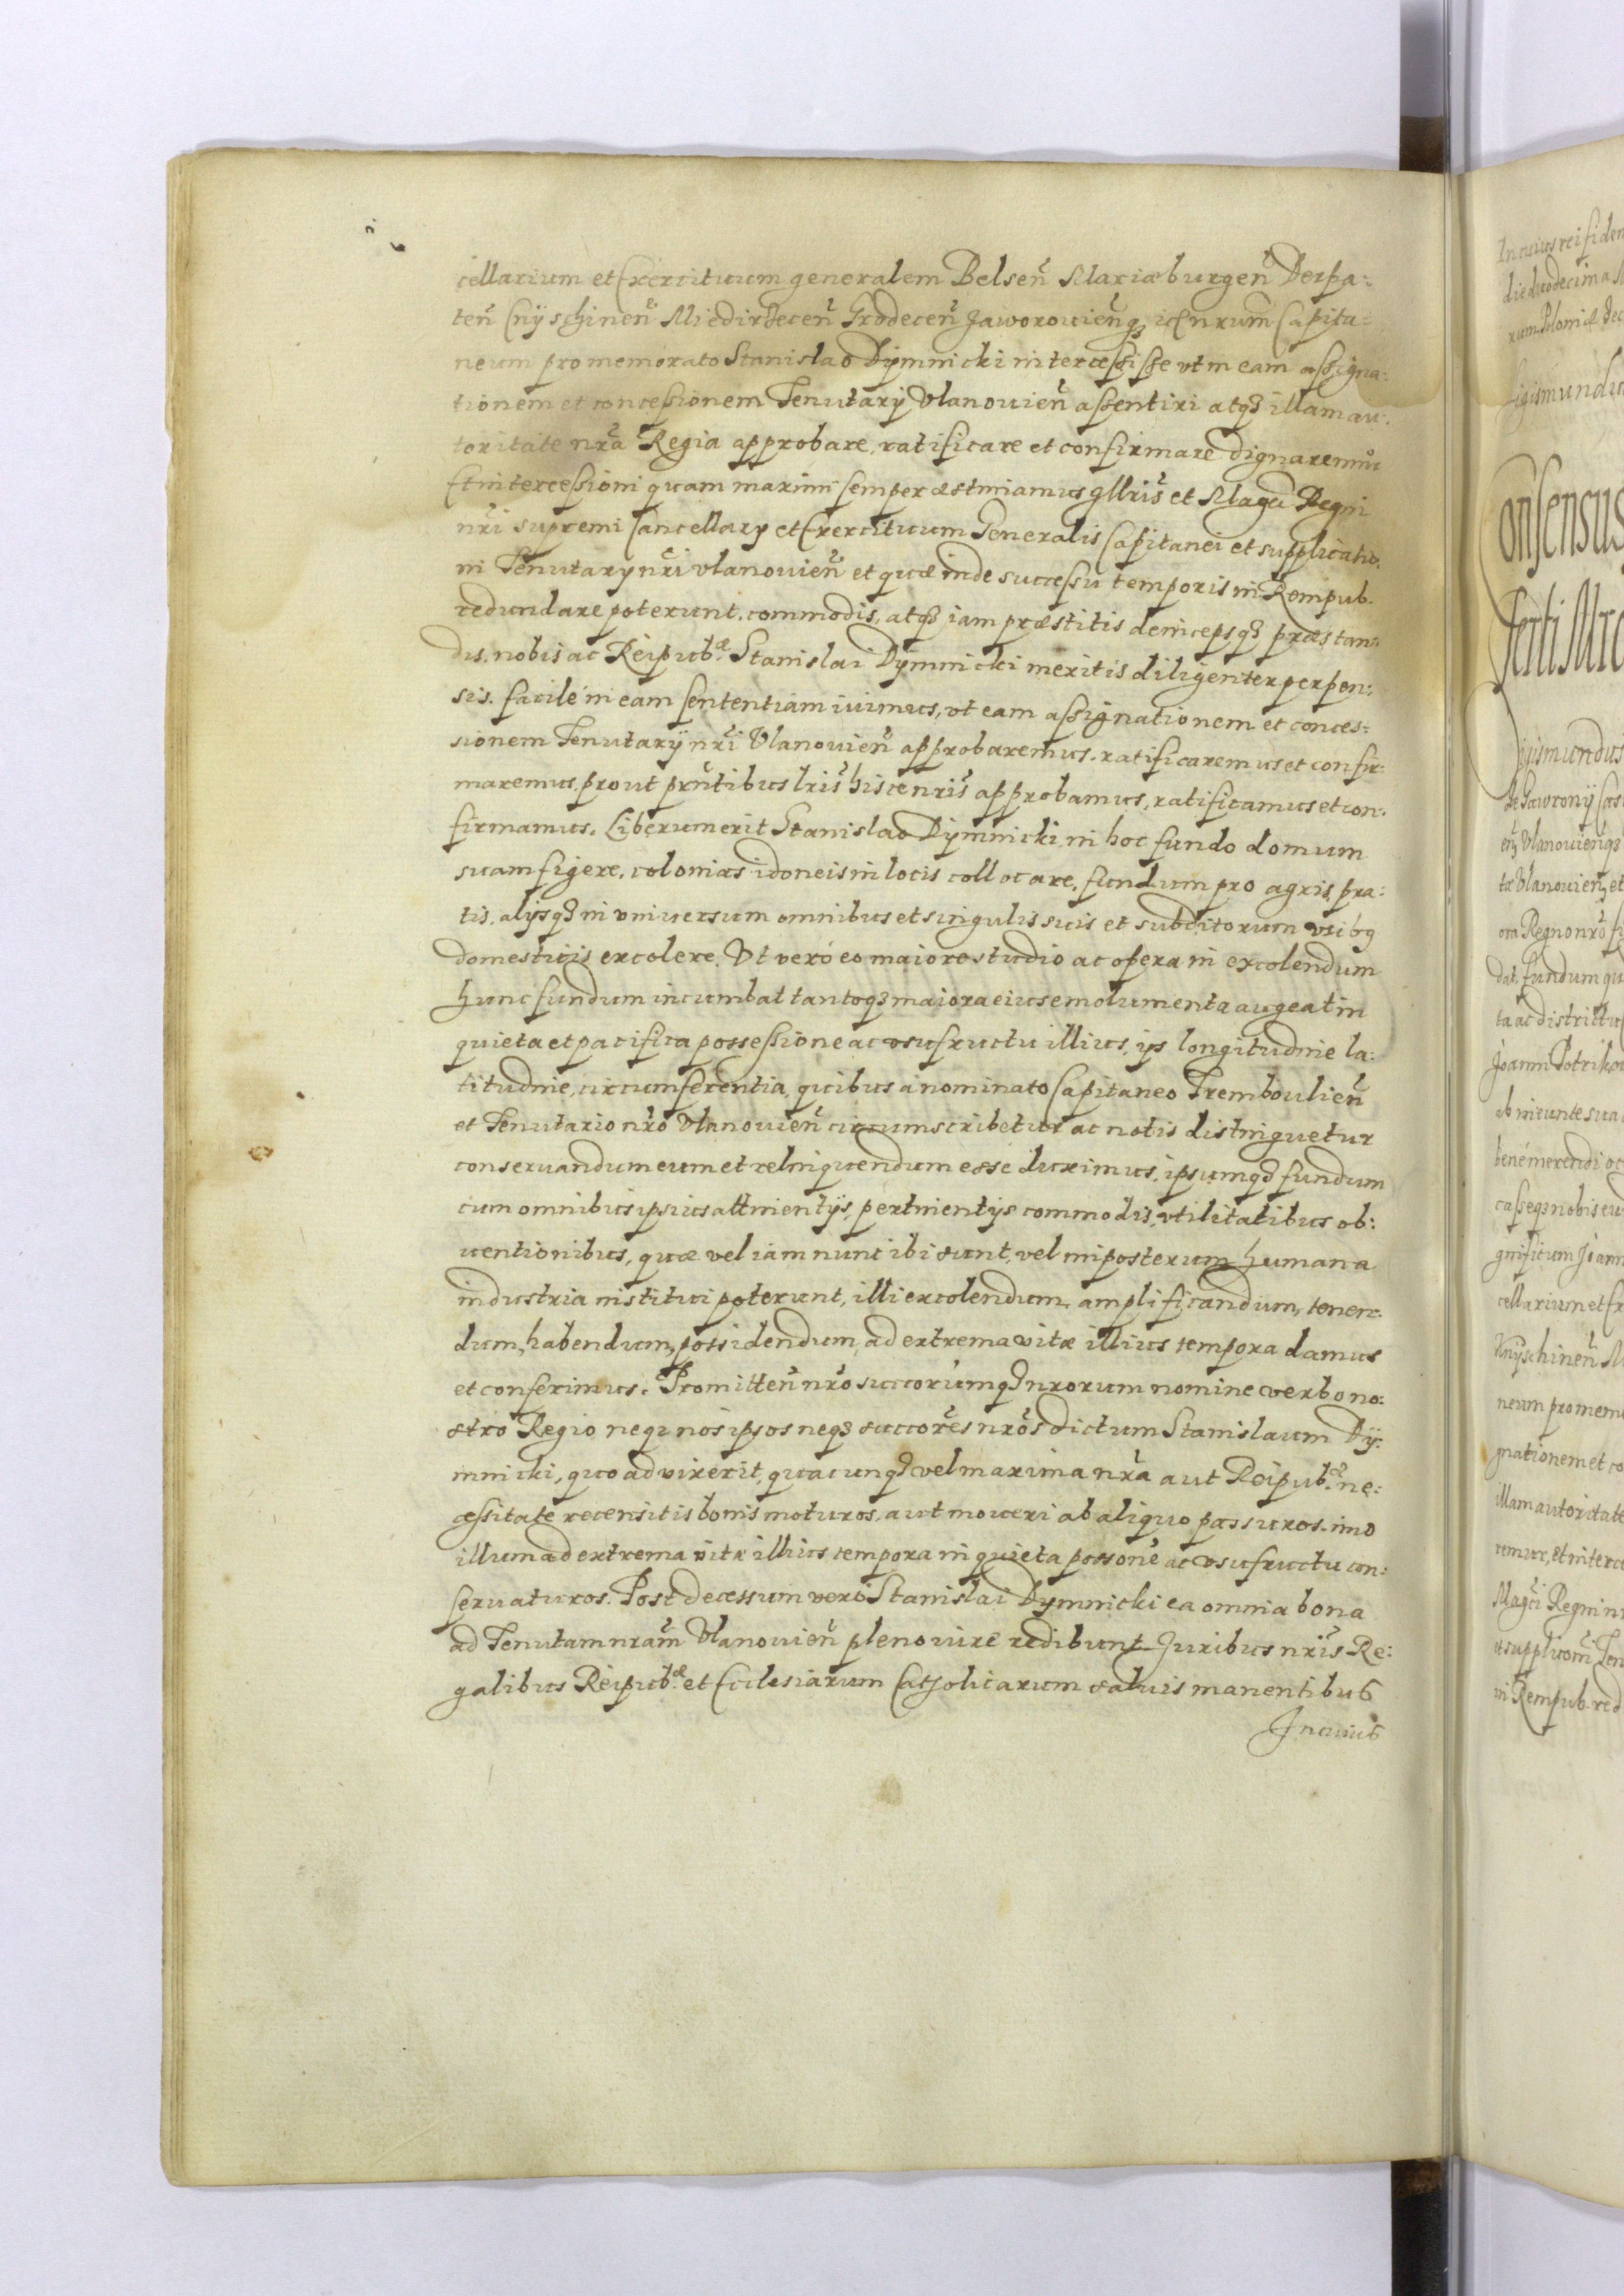 cellarium et Exercituum generalem Belseñ Mariæburgeñ Derpa:
teñ Cnÿschineñ Miedirzeceñ Grodeceñ Jaworouieñq₃ etc nrum̃ Capita:
neum pro memorato Stanislao Dÿmnicki intercessisse vt in eam assigna:
tionem et concessionem Tenutarÿ Vlanouieñ assentiri atq₃ illam au:
toritate nrã Regia approbare, ratificare et confirmare dignaremur
Et intercessioni quam maximi semper æstimamus Illris̃ et Magci Regni
nrĩ supremi Cancellarÿ et Exercituum Generalis Capitanei et supplicatio:
ni Tenutarÿ nrĩ vlanouieñ et quæ inde successu temporis in Rempub.
redundare poterunt, commodis, atq₃ iam præstitis deincepsq₃ præstan:
dis, nobis ac Reipubᵃᵉ Stanislai Dÿmnicki meritis diligenter perpen:
sis. facile in eam sententiam iuimus, vt eam assignationem et conces:
sionem Tenutarÿ nrĩ Vlanouieñ approbaremus, ratificaremus et confir:
maremus, prout prñtibus lris̃ hisce nris̃ approbamus, ratificamus et con:
firmamus. Liberum erit Stanislao Dÿmnicki in hoc fundo domum
suam figere, colonias idoneis in locis collocare, fundum pro agris, pra:
tis, alÿsq₃ in vniuersum omnibus et singulis suis et subditorum vsibq
domesticis excolere. Vt verò eo maiore studio ac opera in excolendum
hunc fundum incumbat tantoq₃ maiora eius emolumenta augeat in
quieta et pacifica possessione ac vsufructu illius, ÿs longitudine la:
titudine, circumferentia, quibus à nominato Capitaneo Tremboulieñ
et Tenutario nrõ Vlanouieñ circumscribetur ac notis distinguetur
conseruandum eum et relinquendum esse duximus, ipsumq₃ fundum
cum omnibus ipsius attinentÿs, pertinentÿs commodis, vtilitatibus ob:
uentionibus, quæ vel iam nunc ibi sunt, vel imposterum humana
industria institui poterunt, illi excolendum, amplificandum, tenen:
dum, habendum, possidendum, ad extrema vitæ illius tempora damus
et conferimus. Promitteñ nrõ succorũmq₃ nrorum nomine verbo no:
stro Regio neq₃ nos ipsos neq₃ succorẽs nrõs dictum Stanislaum Dÿ:
mnicki, quoad vixerit, quacunq₃ vel maxima nrã aut Reipubᵃᵉ ne:
cessitate recensitis bonis moturos, aut moueri ab aliquo passuros, imo
illum ad extrema vitæ illius tempora in quieta possonẽ ac vsufructu con:
seruaturos. Post decessum verò Stanislai Dymnicki ea omnia bona
ad Tenutam nram̃ Vlanouieñ pleno iure redibunt Juribus nris̃ Re:
galibus Reipubᵃᵉ et Ecclesiarum Catholicarum saluis manentibus
In cuius